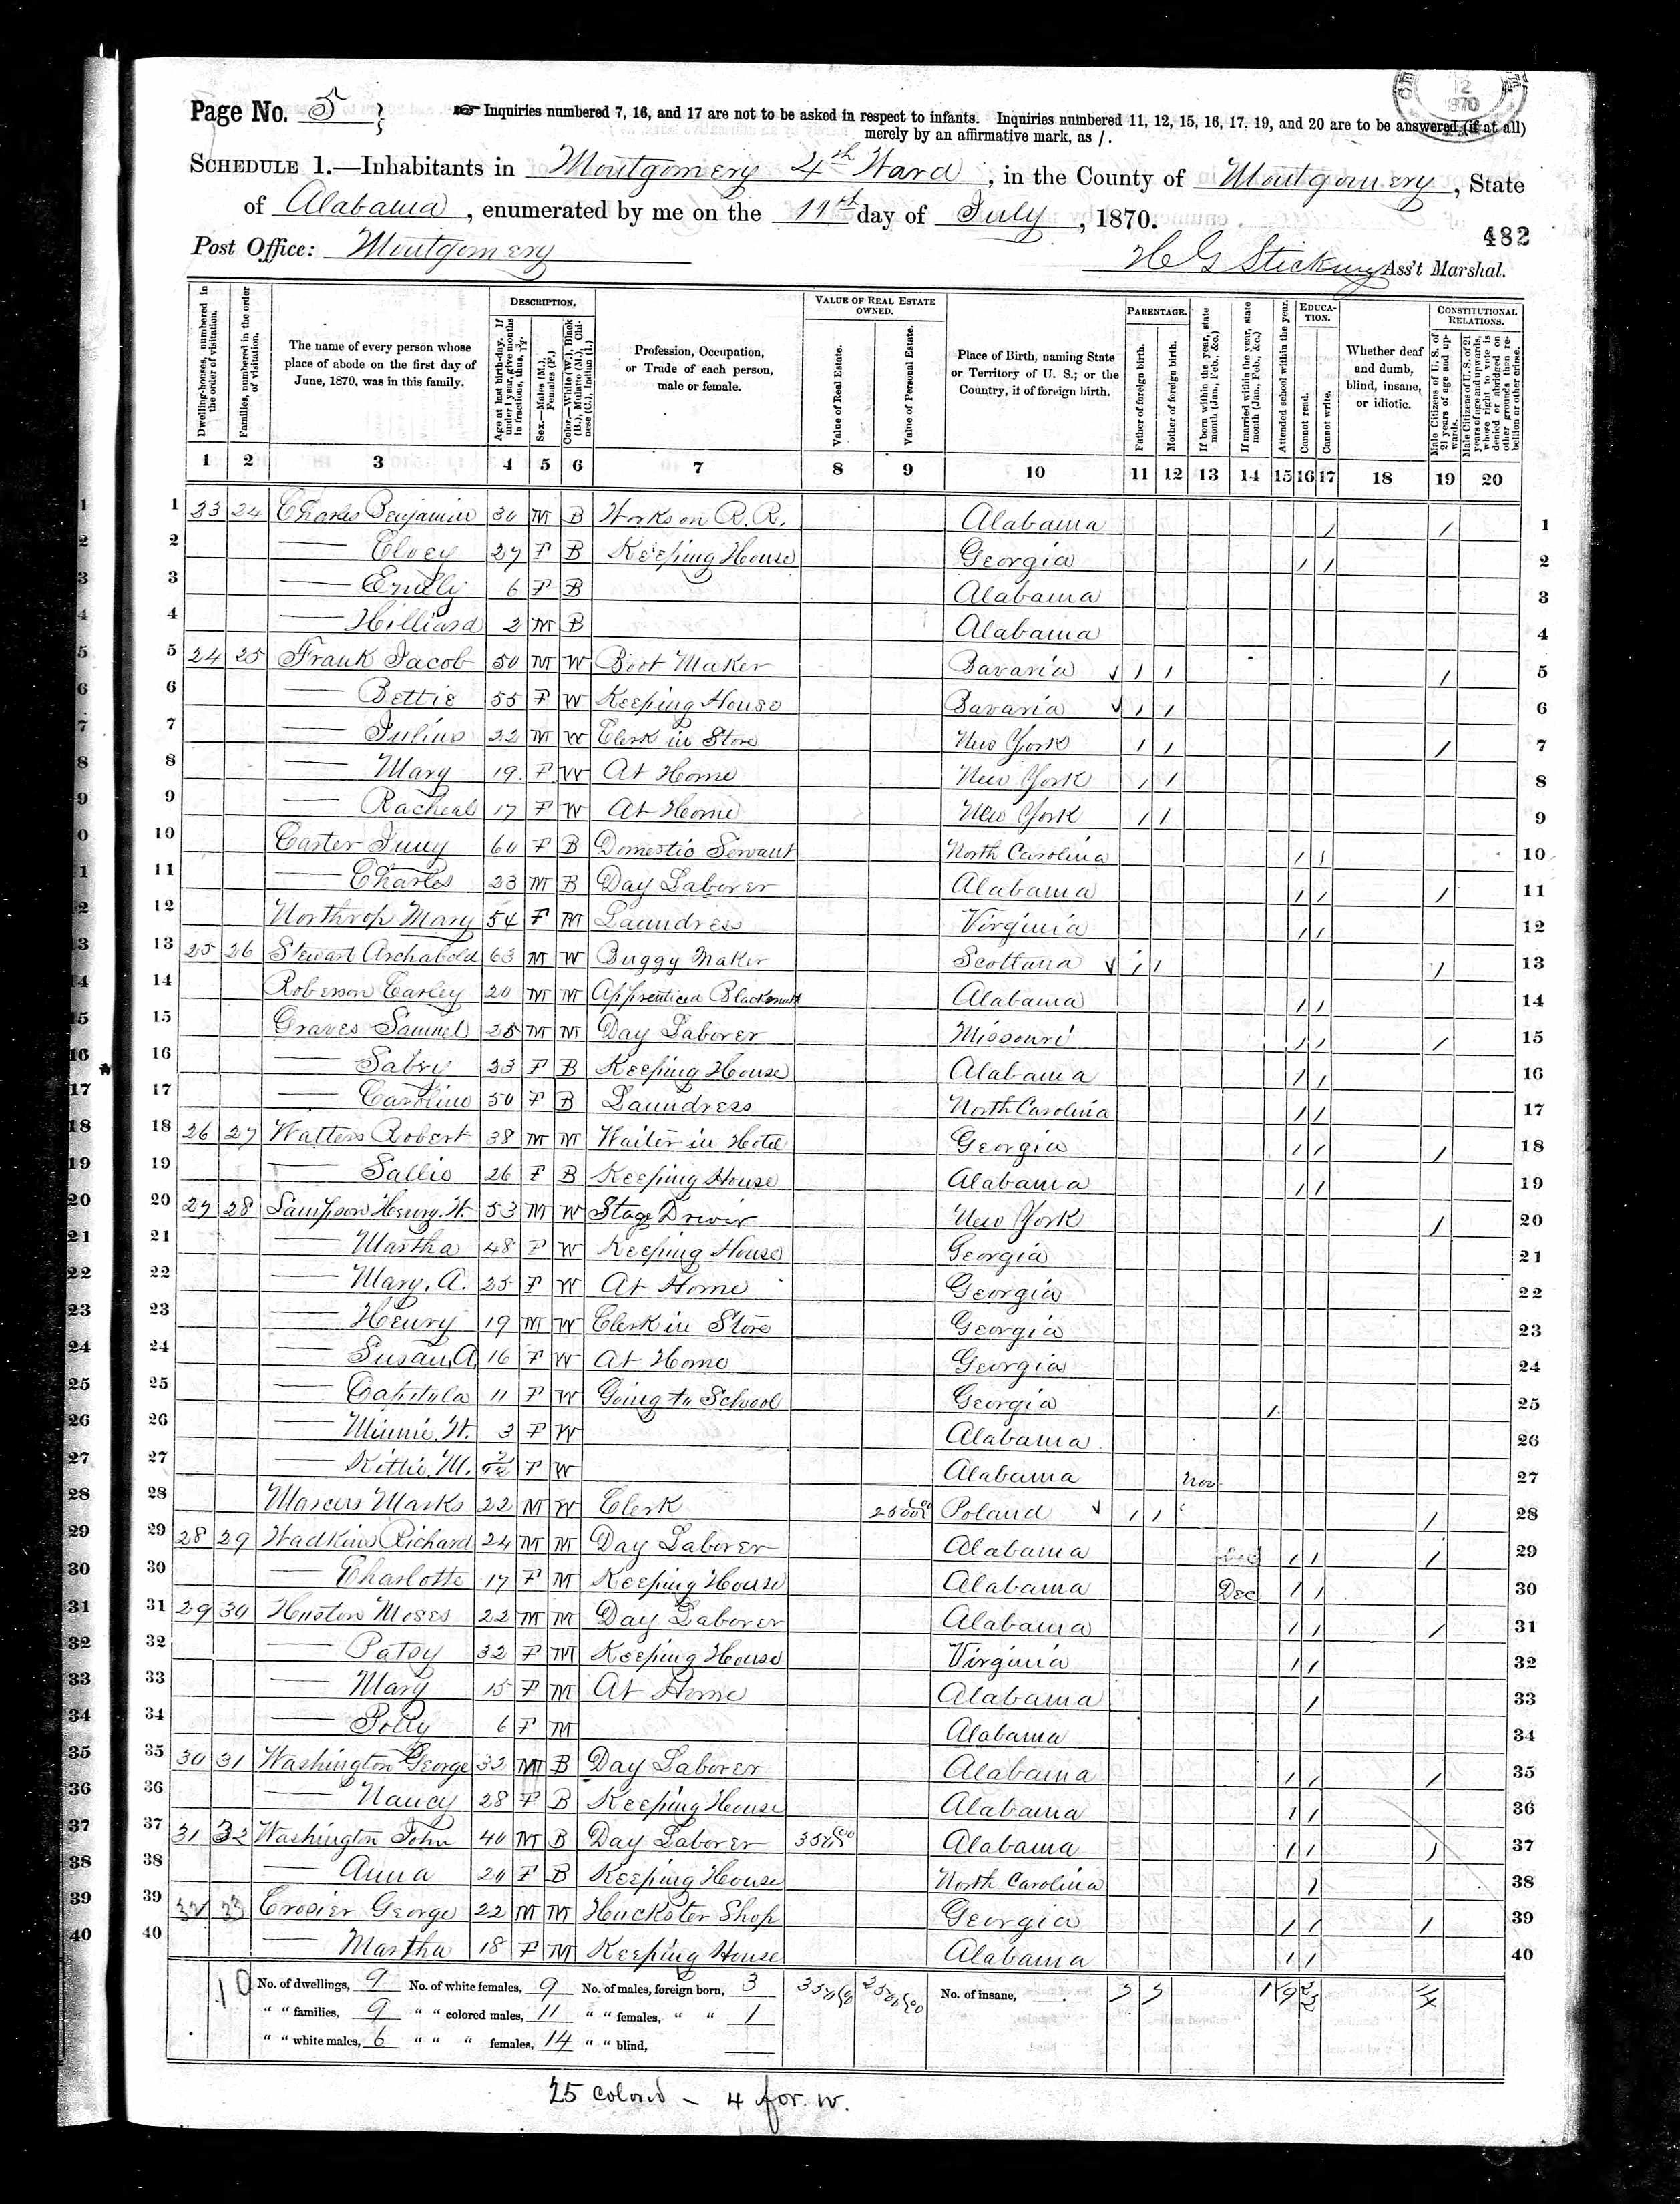 Page No. 5
☞ Inquiries numbered 7, 16, and 17 are not to be asked in respect to infants. Inquiries numbered 11, 12, 15, 16, 17, 19, and 20 are to be answered (if at all)
merely by an affirmative mark, as /.
12
1870
SCHEDULE 1.—Inhabitants in Montgomery 4th Ward, in the County of Montgomery, State
of Alabama, enumerated by me on the 11th day of July, 1870.
482
Post Office: Montgomery
Ass't Marshal.
DESCRIPTION.
VALUE OF REAL ESTATE OWNED.
PARENTAGE.
EDUCATION.
CONSTITUTIONAL RELATIONS.
Dwelling-houses, numbered in the order of visitation.
Families, numbered in the order of visitation.
The name of every person whose place of abode on the first day of June, 1870, was in this family.
Age at last birth-day. If under 1 year, give months in fractions, thus, 3/12.
Sex.—Males (M.), Females (F.)
Color.—White (W.), Black (B.), Mulatto (M.), Chinese (C.), Indian (I.)
Profession, Occupation, or Trade of each person, male or female.
Value of Real Estate.
Value of Personal Estate.
Place of Birth, naming State or Territory of U. S.; or the Country, if of foreign birth.
Father of foreign birth.
Mother of foreign birth.
If born within the year, state month (Jan., Feb., &c.)
If married within the year, state month (Jan., Feb., &c.)
Attended school within the year.
Cannot read.
Cannot write.
Whether deaf and dumb, blind, insane, or idiotic.
Male Citizens of U. S. of 21 years of age and upwards.
Male Citizens of U. S. of 21 years of age and upwards, where right to vote is denied or abridged on other grounds than rebellion or other crime.
1 2 3 4 5 6 7 8 9 10 11 12 13 14 15 16 17 18 19 20
1 23 24 Charles Benjamin 30 M B Works on R. R. Alabama / / 1
2 — Elvey 27 F B Keeping House Georgia / / 2
3 — Emily 6 F B Alabama 3
4 — Hilliard 2 M B Alabama 4
5 24 25 Frank Jacob 50 M W Boot Maker Bavaria ✓ / / / 5
6 — Bettie 55 F W Keeping House Bavaria ✓ / / 6
7 — Julius 22 M W Clerk in Store New York / / / 7
8 — Mary 19 F W At Home New York / / 8
9 — Racheal 17 F W At Home New York / / 9
10 Carter Juny 60 F B Domestic Servant North Carolina / / 10
11 — Charles 23 M B Day Laborer Alabama / / / 11
12 Northrop Mary 54 F M Laundress Virginia / / 12
13 25 26 Stewart Archabold 63 M W Buggy Maker Scotland ✓ / / / 13
14 Roberson Carley 20 M M Apprenticed Blacksmith Alabama / / 14
15 Graves Samuel 25 M M Day Laborer Missouri / / / 15
16 — Sabry 23 F B Keeping House Alabama / / 16
17 — Caroline 50 F B Laundress North Carolina / / 17
18 26 27 Watters Robert 38 M M Waiter in Hotel Georgia / / / 18
19 — Sallie 26 F B Keeping House Alabama / / 19
20 27 28 Sampson Henry. H. 53 M W Stage Driver New York / 20
21 — Martha 48 F W Keeping House Georgia 21
22 — Mary. A. 25 F W At Home Georgia 22
23 — Henry 19 M W Clerk in Store Georgia 23
24 — Susan, A 16 F W At Home Georgia 24
25 — Capitula 11 F W Going to School Georgia / 25
26 — Minnie. H. 3 F W Alabama 26
27 — Kittie. M. 7/12 F W Alabama Nov 27
28 Marcus Marks 22 M W Clerk 2500 00 Poland ✓ / / / 28
29 28 29 Wadkins Richard 24 M M Day Laborer Alabama / / / 29
30 — Charlotte 17 F M Keeping House Alabama Dec / / 30
31 29 30 Huston Moses 22 M M Day Laborer Alabama / / / 31
32 — Patsy 32 F M Keeping House Virginia / / 32
33 — Mary 15 F M At Home Alabama / 33
34 — Polly 6 F M Alabama 34
35 30 31 Washington George 32 M B Day Laborer Alabama / / / 35
36 — Nancy 28 F B Keeping House Alabama / / 36
37 31 32 Washington John 40 M B Day Laborer 350 00 Alabama / / / 37
38 — Anna 20 F B Keeping House North Carolina / 38
39 32 33 Crosier George 22 M M Huckster Shop Georgia / / / 39
40 — Martha 18 F M Keeping House Alabama / / 40
10 No. of dwellings, 9 No. of white females, 9 No. of males, foreign born, 3 350 00 2500 00 No. of insane, 5 5 1 19 22
" " families, 9 " " colored males, 11 " " females, " " 1
" " white males, 6 " " " females, 14 " " blind,
25 colored – 4 for. w.